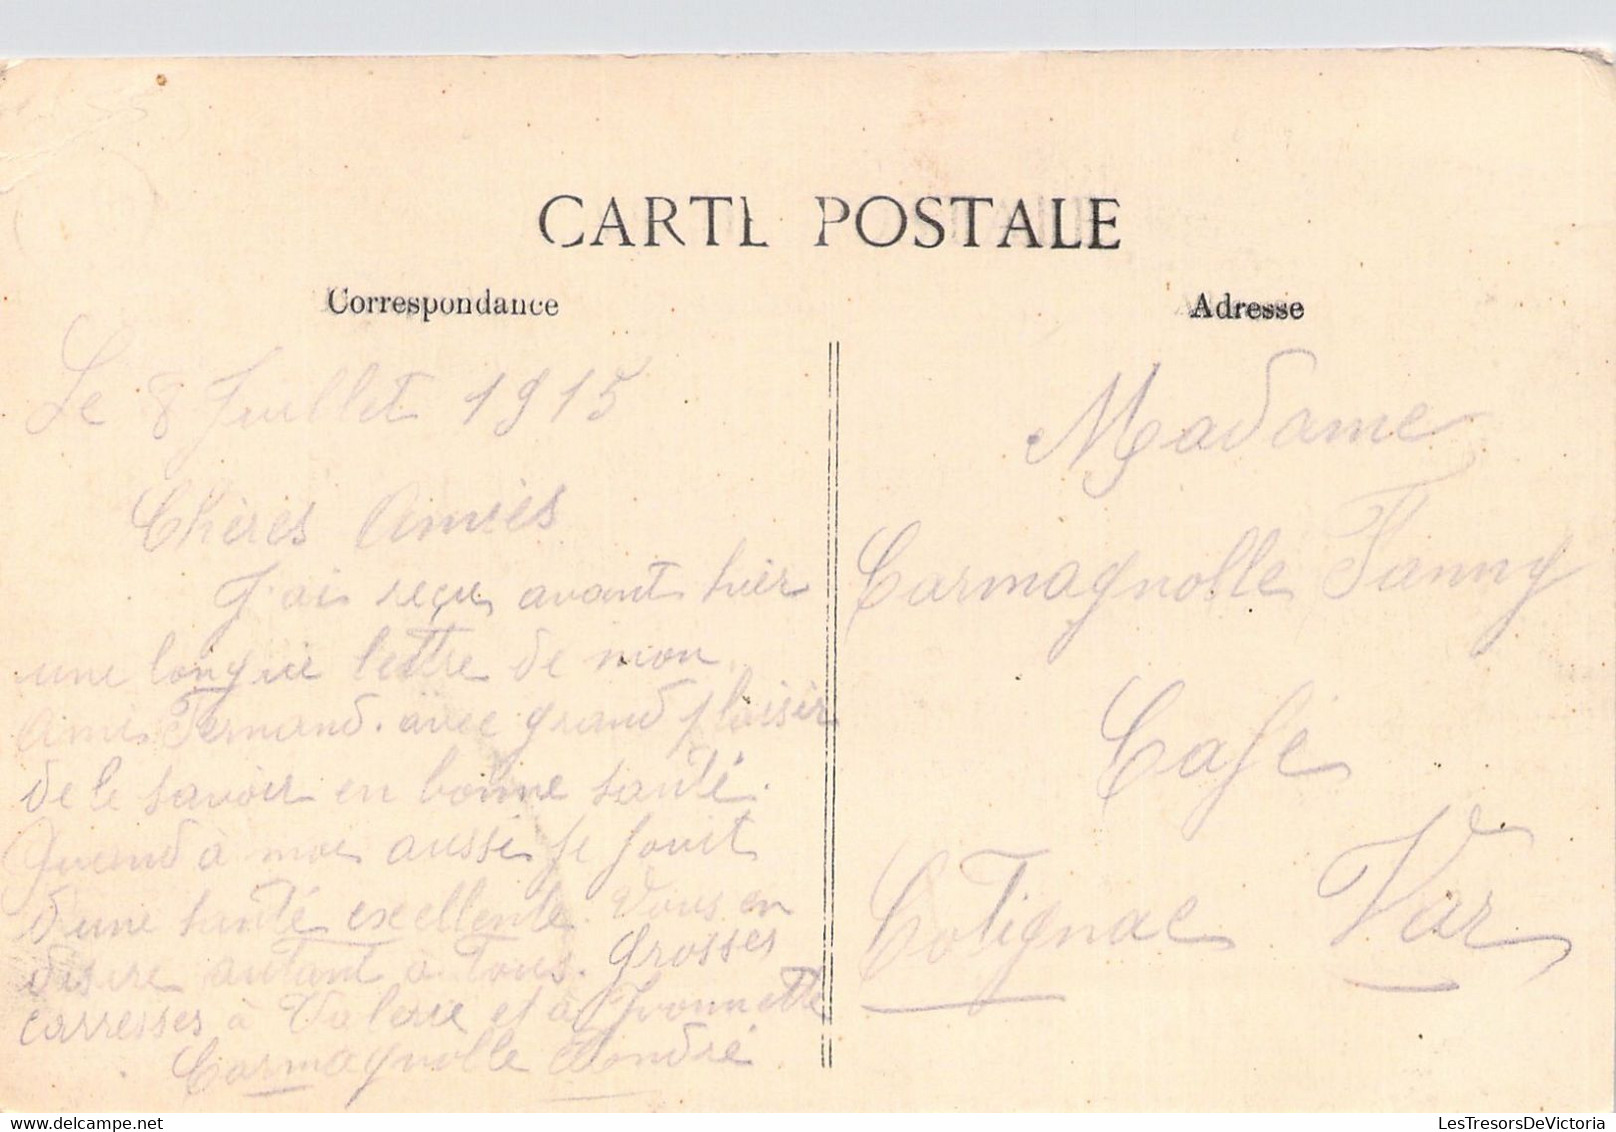 CARTE POSTALE
Correspondance
Adresse
Le 8 Juillet 1915
Chères Amies
J'ai reçu avant hier
une longue lettre de mon
Ami Fernand. avec grand plaisir
de le savoir en bonne santé.
Quand à moi aussi je jouit
d'une santé excellente. Vous en
désire autant à tous. Grosses
carresses à Valerie et à Yvonnette
Carmagnolle André
Madame
Carmagnolle Fanny
Café
Cotignac Var
LesTresorsDeVictoria